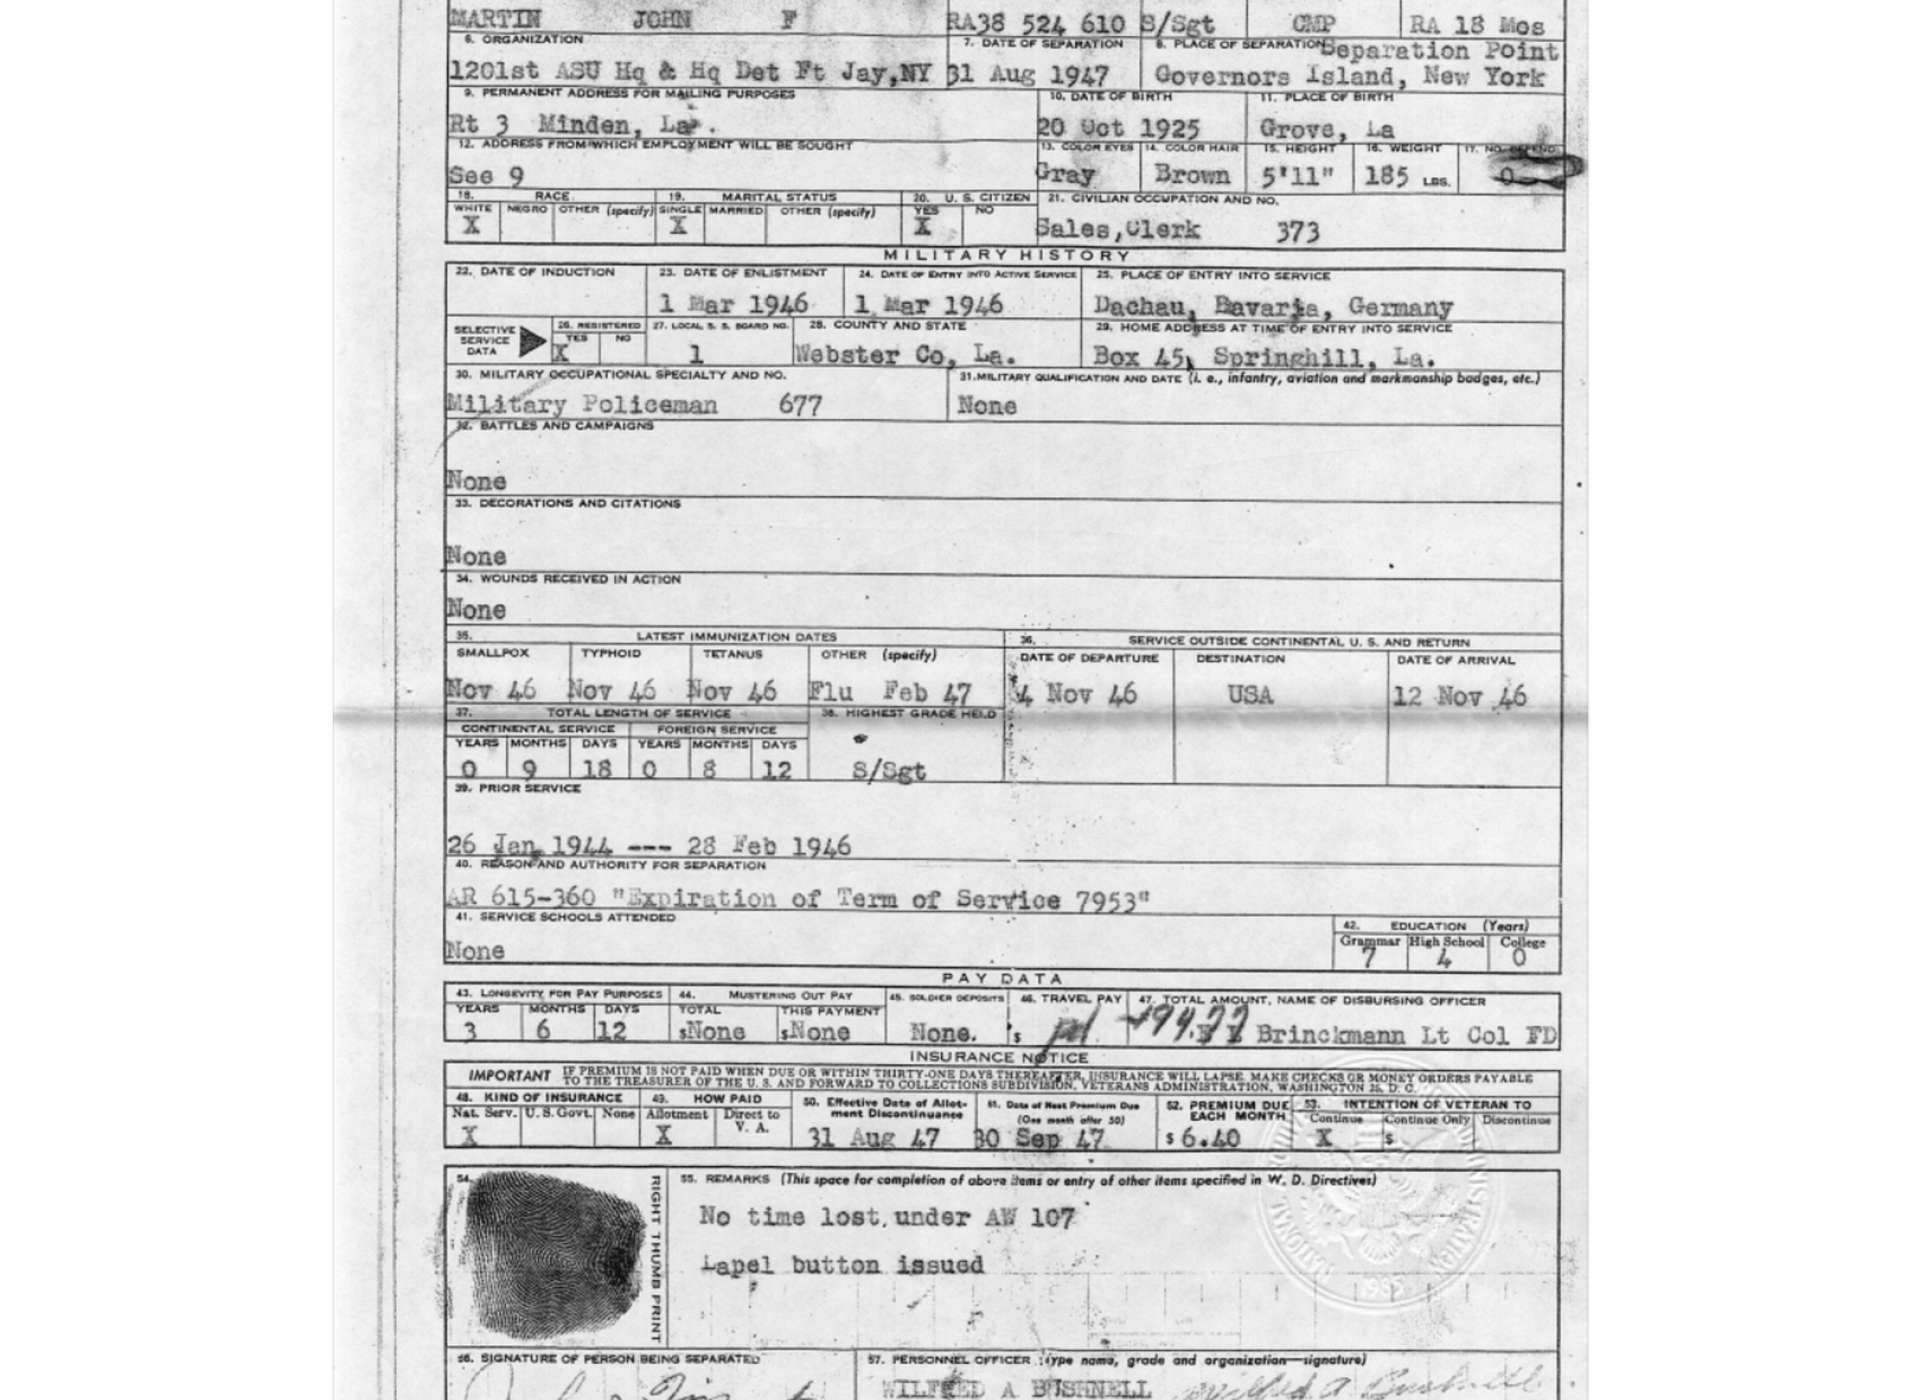 MARTIN JOHN F RA38 524 610 S/Sgt CMP RA 18 Mos
6. ORGANIZATION 7. DATE OF SEPARATION 8. PLACE OF SEPARATION Separation Point
1201st ASU Hq & Hq Det Ft Jay,NY 31 Aug 1947 Governors Island, New York
9. PERMANENT ADDRESS FOR MAILING PURPOSES 10. DATE OF BIRTH 11. PLACE OF BIRTH
Rt 3 Minden, La. 20 Oct 1925 Grove, La
12. ADDRESS FROM WHICH EMPLOYMENT WILL BE SOUGHT 13. COLOR EYES 14. COLOR HAIR 15. HEIGHT 16. WEIGHT 17. NO.
See 9 Gray Brown 5'11" 185 LBS. 0
18. RACE 19. MARITAL STATUS 20. U. S. CITIZEN 21. CIVILIAN OCCUPATION AND NO.
WHITE NEGRO OTHER (specify) SINGLE MARRIED OTHER (specify) YES NO
X X X Sales,Clerk 373
MILITARY HISTORY
22. DATE OF INDUCTION 23. DATE OF ENLISTMENT 24. DATE OF ENTRY INTO ACTIVE SERVICE 25. PLACE OF ENTRY INTO SERVICE
1 Mar 1946 1 Mar 1946 Dachau, Bavaria, Germany
SELECTIVE SERVICE DATA 26. REGISTERED 27. LOCAL S. S. BOARD NO. 28. COUNTY AND STATE 29. HOME ADDRESS AT TIME OF ENTRY INTO SERVICE
YES NO
X 1 Webster Co, La. Box 45, Springhill, La.
30. MILITARY OCCUPATIONAL SPECIALTY AND NO. 31. MILITARY QUALIFICATION AND DATE (i. e., infantry, aviation and markmanship badges, etc.)
Military Policeman 677 None
32. BATTLES AND CAMPAIGNS
None
33. DECORATIONS AND CITATIONS
None
34. WOUNDS RECEIVED IN ACTION
None
35. LATEST IMMUNIZATION DATES 36. SERVICE OUTSIDE CONTINENTAL U. S. AND RETURN
SMALLPOX TYPHOID TETANUS OTHER (specify) DATE OF DEPARTURE DESTINATION DATE OF ARRIVAL
Nov 46 Nov 46 Nov 46 Flu Feb 47 4 Nov 46 USA 12 Nov 46
37. TOTAL LENGTH OF SERVICE 38. HIGHEST GRADE HELD
CONTINENTAL SERVICE FOREIGN SERVICE
YEARS MONTHS DAYS YEARS MONTHS DAYS
0 9 18 0 8 12 S/Sgt
39. PRIOR SERVICE
26 Jan 1944 --- 28 Feb 1946
40. REASON AND AUTHORITY FOR SEPARATION
AR 615-360 "Expiration of Term of Service 7953"
41. SERVICE SCHOOLS ATTENDED 42. EDUCATION (Years)
Grammar High School College
None 7 4 0
PAY DATA
43. LONGEVITY FOR PAY PURPOSES 44. MUSTERING OUT PAY 45. SOLDIER DEPOSITS 46. TRAVEL PAY 47. TOTAL AMOUNT, NAME OF DISBURSING OFFICER
YEARS MONTHS DAYS TOTAL THIS PAYMENT
3 6 12 $None $None None. $ Brinckmann Lt Col FD
INSURANCE NOTICE
IMPORTANT IF PREMIUM IS NOT PAID WHEN DUE OR WITHIN THIRTY-ONE DAYS THEREAFTER, INSURANCE WILL LAPSE. MAKE CHECKS OR MONEY ORDERS PAYABLE
TO THE TREASURER OF THE U. S. AND FORWARD TO COLLECTIONS SUBDIVISION, VETERANS ADMINISTRATION, WASHINGTON 25, D. C.
48. KIND OF INSURANCE 49. HOW PAID 50. Effective Date of Allot-ment Discontinuance 51. Date of Next Premium Due (One month after 50) 52. PREMIUM DUE EACH MONTH 53. INTENTION OF VETERAN TO
Nat. Serv. U.S. Govt. None Allotment Direct to V. A. Continue Continue Only Discontinue
X X 31 Aug 47 30 Sep 47 $6.40 X $
54. RIGHT THUMB PRINT 55. REMARKS (This space for completion of above items or entry of other items specified in W. D. Directives)
No time lost under AW 107
Lapel button issued
56. SIGNATURE OF PERSON BEING SEPARATED 57. PERSONNEL OFFICER (Type name, grade and organization—signature)
WILFRED A BUSHNELL Wilfred A Bushnell